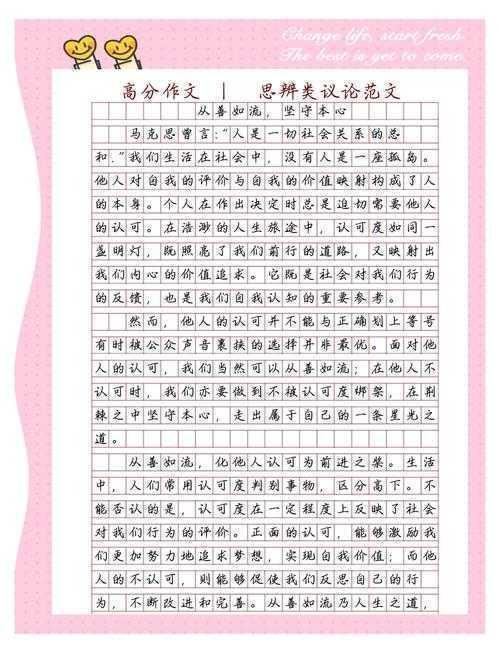 Change life, start fresh
The best is yet to come.
高分作文 | 思辨类议论范文
从善如流，坚守本心
马克思曾言："人是一切社会关系的总
和."我们生活在社会中，没有人是一座孤岛。
他人对自我的评价与自我的价值映射构成了人
的本身。个人在作出决定时总是迫切需要他人
的认可。在浩渺的人生旅途中，认可度如同一
盏明灯，既照亮了我们前行的道路，又映射出
我们内心的价值追求。它既是社会对我们行为
的反馈，也是我们自我认知的重要参考。
然而，他人的认可并不能与正确划上等号
有时被公众声音裹挟的选择并非最优。面对他
人的认可，我们当然可以从善如流；在他人不
认可时，我们亦要做到不被认可度绑架，在荆
棘之中坚守本心，走出属于自己的一条星光之
道。
从善如流，化他人认可为前进之桨。生活
中，人们常用认可度判别事物，区分高下。不
能否认的是，认可度在一定程度上反映了社会
对我们行为的评价。正面的认可，能够激励我
们更加努力地追求梦想，实现自我价值；而他
人的不认可，则能够促使我们反思自己的行
为，不断改进和完善。从善如流乃人生之道，